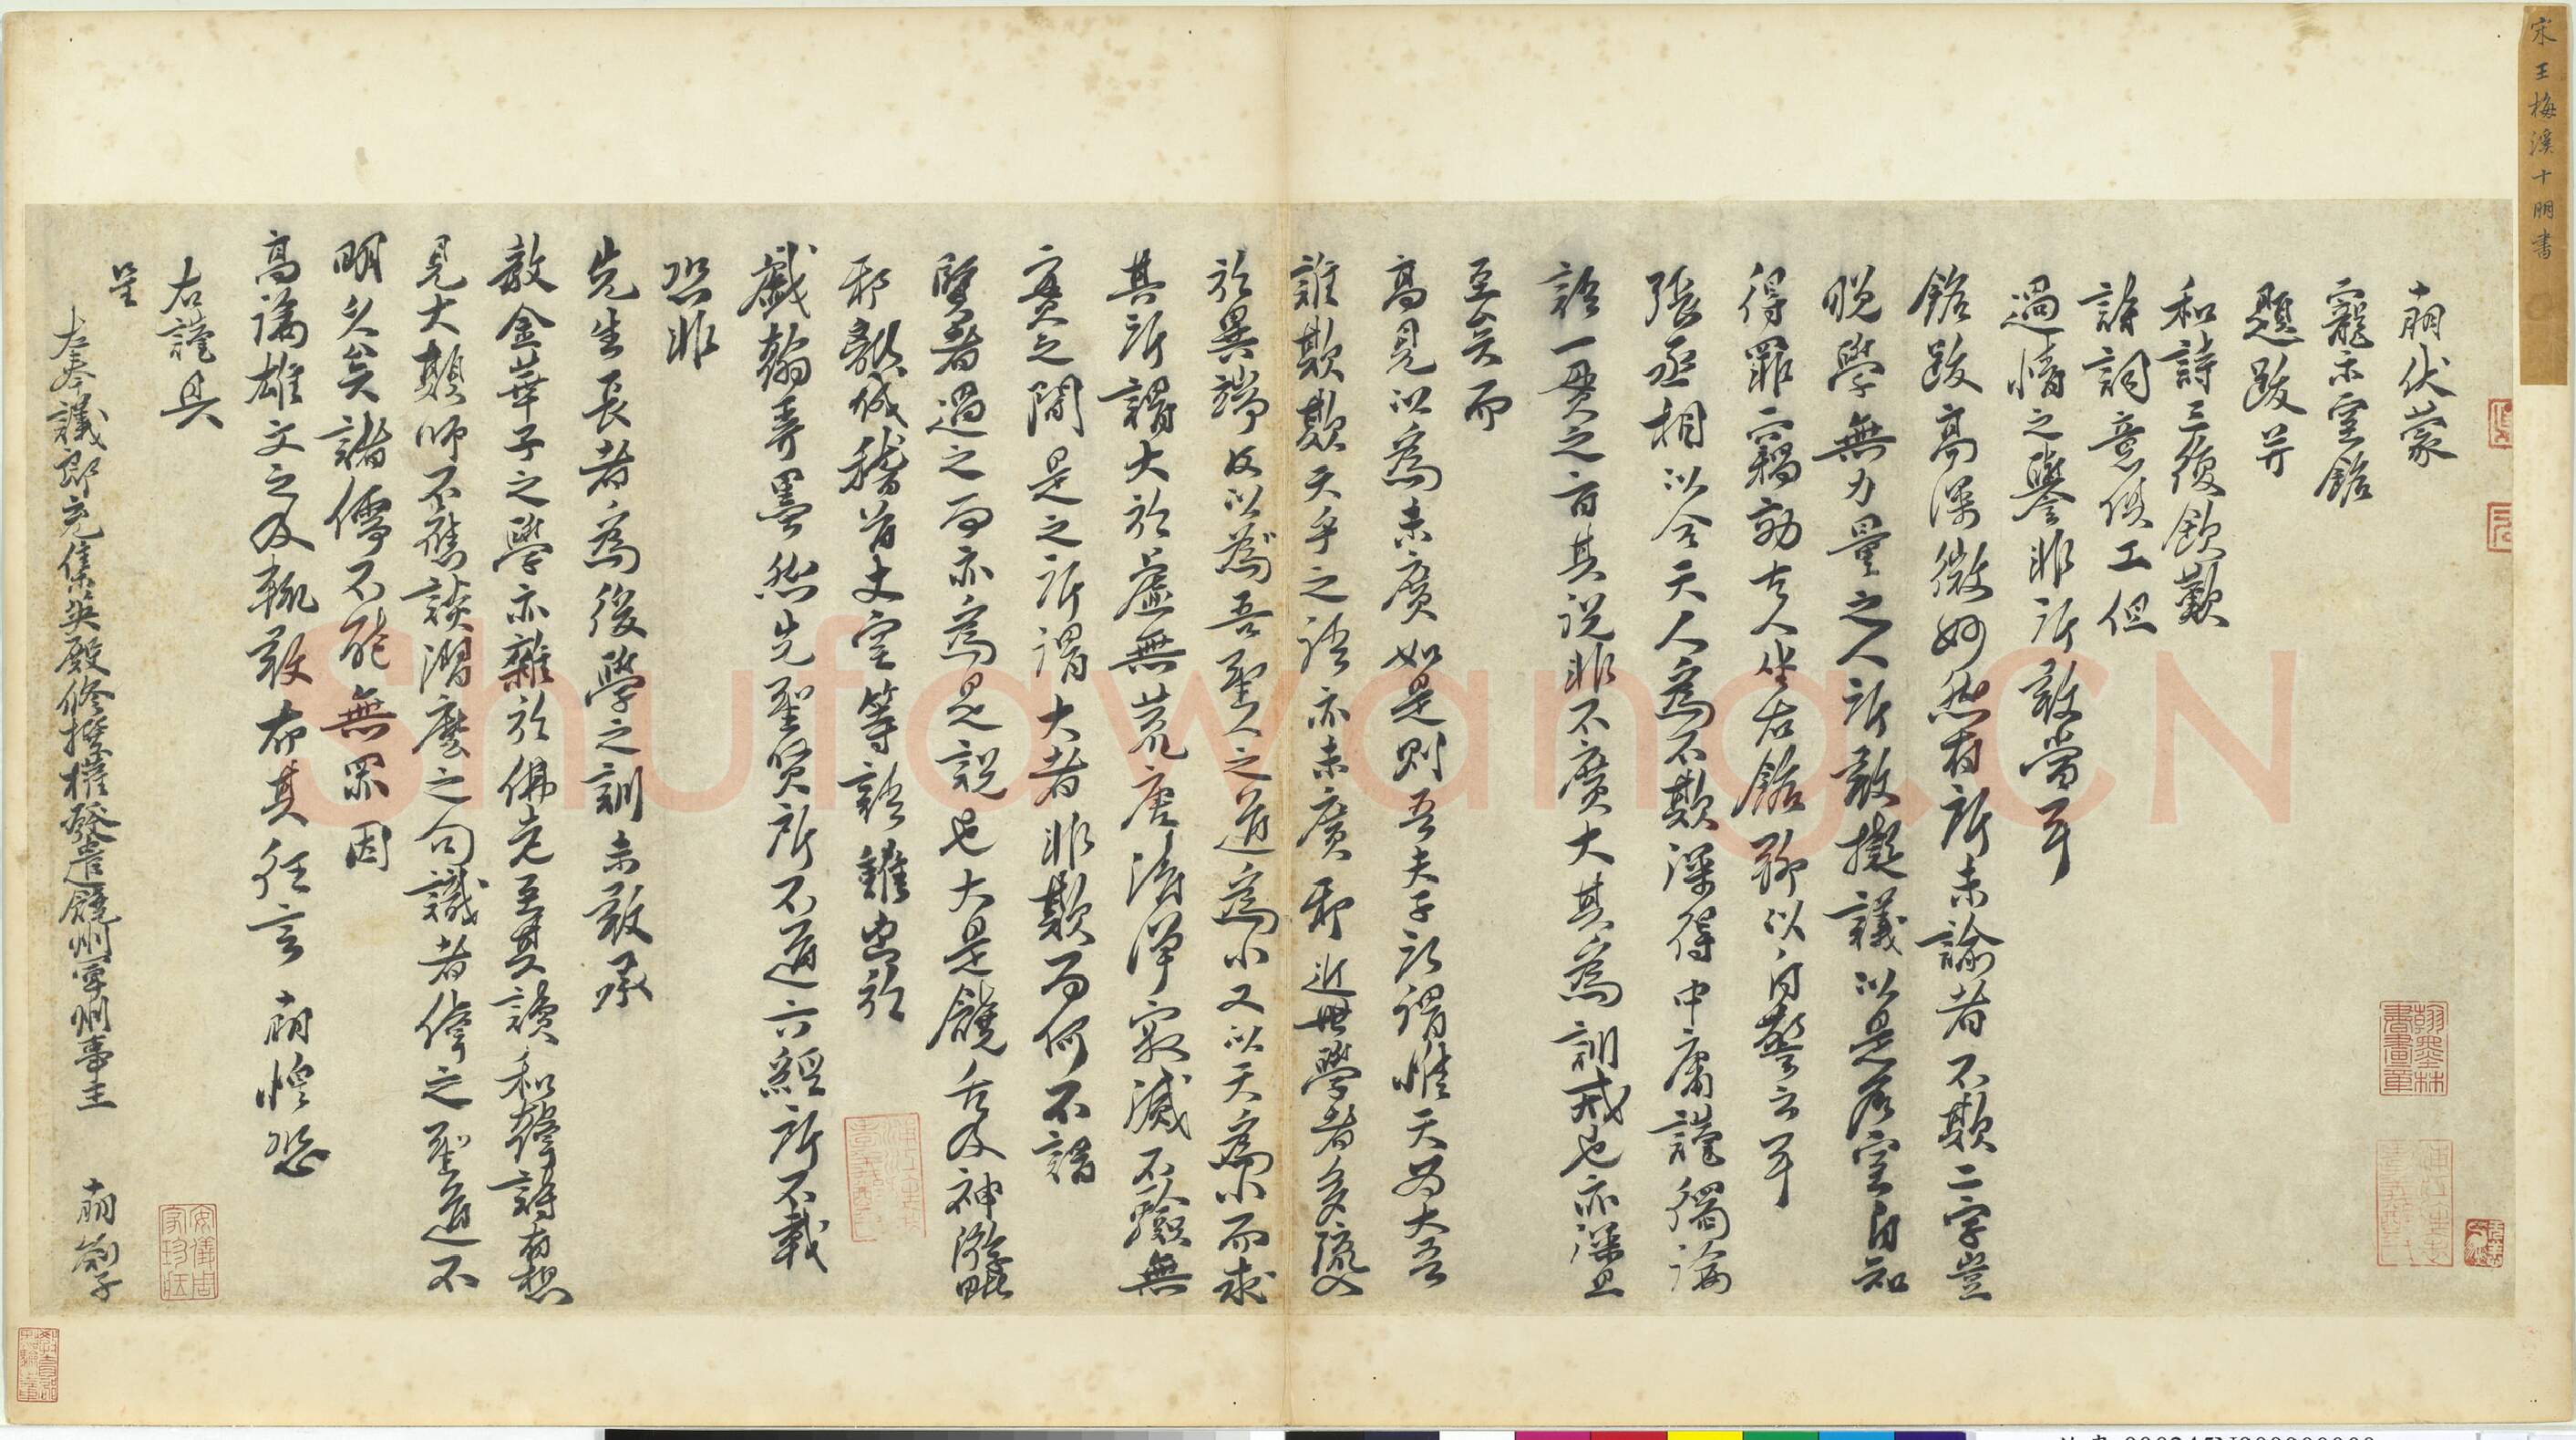 宋王梅溪十朋書
十朋伏蒙
寵示室銘
題跋并
和詩三復欽歎
詩詞意俱工但
過情之譽非所敢當耳
銘跋高深微妙然有所未諭者不欺二字豈
晚學無力量之人所敢擬議以是名室自知
得罪而竊効古人坐右銘聊以自警云耳
張丞相以合天人為不欺深得中庸謹獨論
語一貫之旨其說非不廣大其為訓戒也亦深且
至矣而
高見以為未廣如是則吾夫子所謂惟天為大吾
誰欺欺天乎之語亦未廣耶近世學者多流入
於異端反以為吾聖人之道為小又以天為小而求
其所謂大於虛無荒唐溟涬寂滅不驗無
實之間是之所謂大者非欺而何不謂
賢者過之而亦為是說也大是饒舌及神游毗
耶 稽首丈室等語雖出於
戲翰弄墨然先聖賢所不道六經所不載
恐非
先生長者為後學之訓未敢承
教金華子之學亦雜於佛老至其讀和韓詩有想
見大顛師不應談潤麼之句識者偉之聖道不
明久矣諸儒不能無罪因
高論雄文之及輒敢布其狂言 十朋惶恐
右謹具
呈
左奉議郎充集英殿修撰權發遣饒州軍州事王 十朋 劄子
shufawang.CN